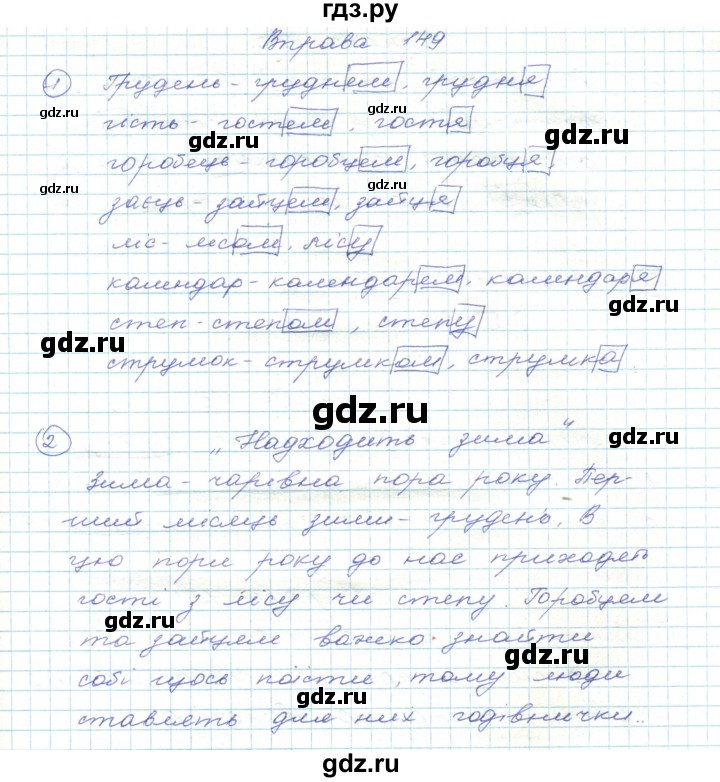 гдз.ру
Вправа 149
1 Грудень - груднем, грудня
gdz.ru
gdz.ru
гість - гостем, гостя
gdz.ru
gdz.ru
горобець - горобцем, горобця
gdz.ru
gdz.ru
заєць - зайцем, зайця
ліс - лісом, лісу
календар - календарем, календаря
gdz.ru
степ - степом, степу
gdz.ru
струмок - струмком, струмка
gdz.ru
gdz.ru
2 „Надходить зима“
gdz.ru
Зима - чарівна пора року. Пер-
ший місяць зими - грудень. В
цю пору року до нас приходять
гості з лісу чи степу. Горобцем
gdz.ru
та зайцем важко знайти
gdz.ru
собі щось поїсти, тому люди
gdz.ru
ставлять для них годівнички..